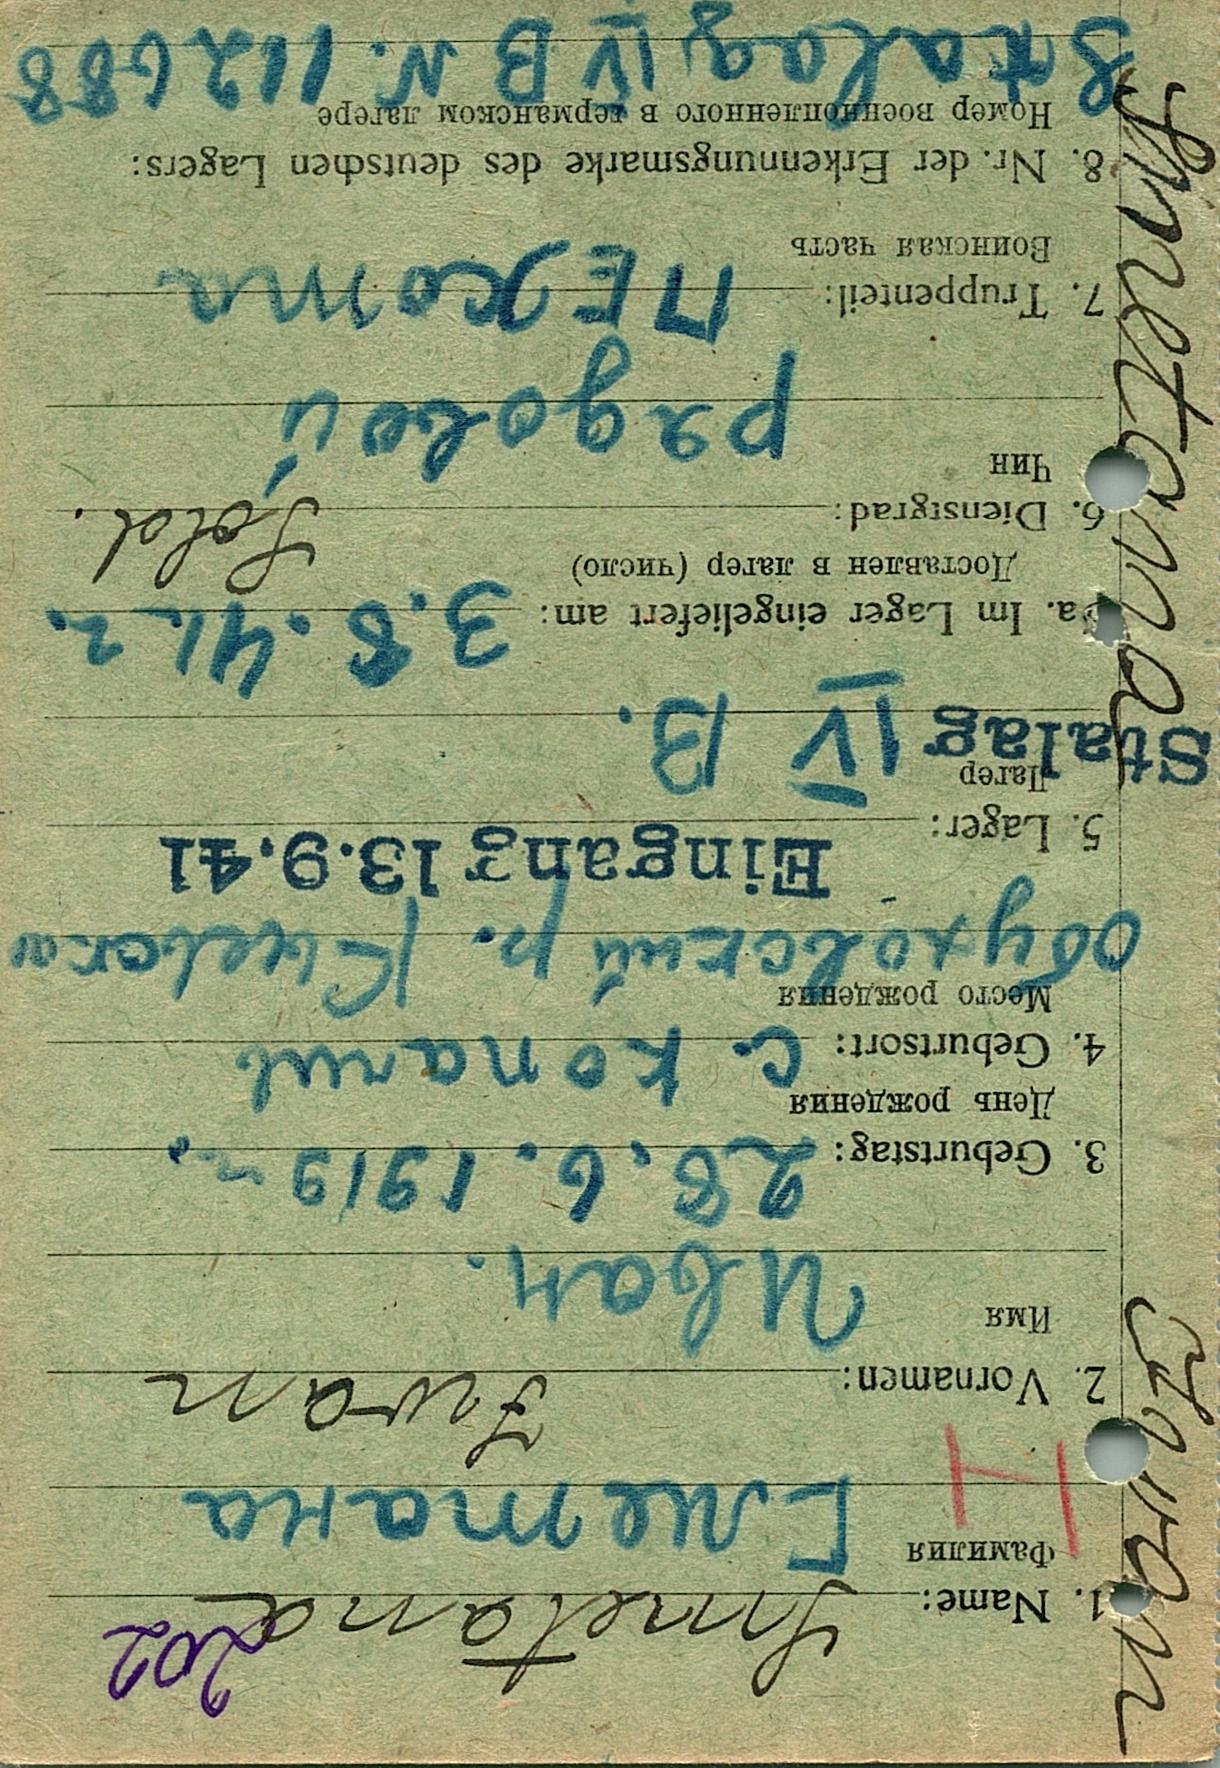 202
Smetana
1. Name:
Фамилия
Сметана
H
Iwan
2. Vornamen:
Имя
Иван.
3. Geburtstag: 28.6.1919 г.
День рождения
4. Geburtsort: с. копачив
Место рождения
Обуховский р. Киевска
Eingang 13.9.41
5. Lager:
Лагер
Stalag IV B.
5a. Im Lager eingeliefert am: 3.8.41 г.
Доставлен в лагер (число)
6. Dienstgrad: Sold.
Чин
рядовой
7. Truppenteil: ПЕхота
Воинская часть
8. Nr. der Erkennungsmarke des deutschen Lagers:
Номер военнопленного в германском лагере
Stalag IV B N. 112688
Smetana Iwan